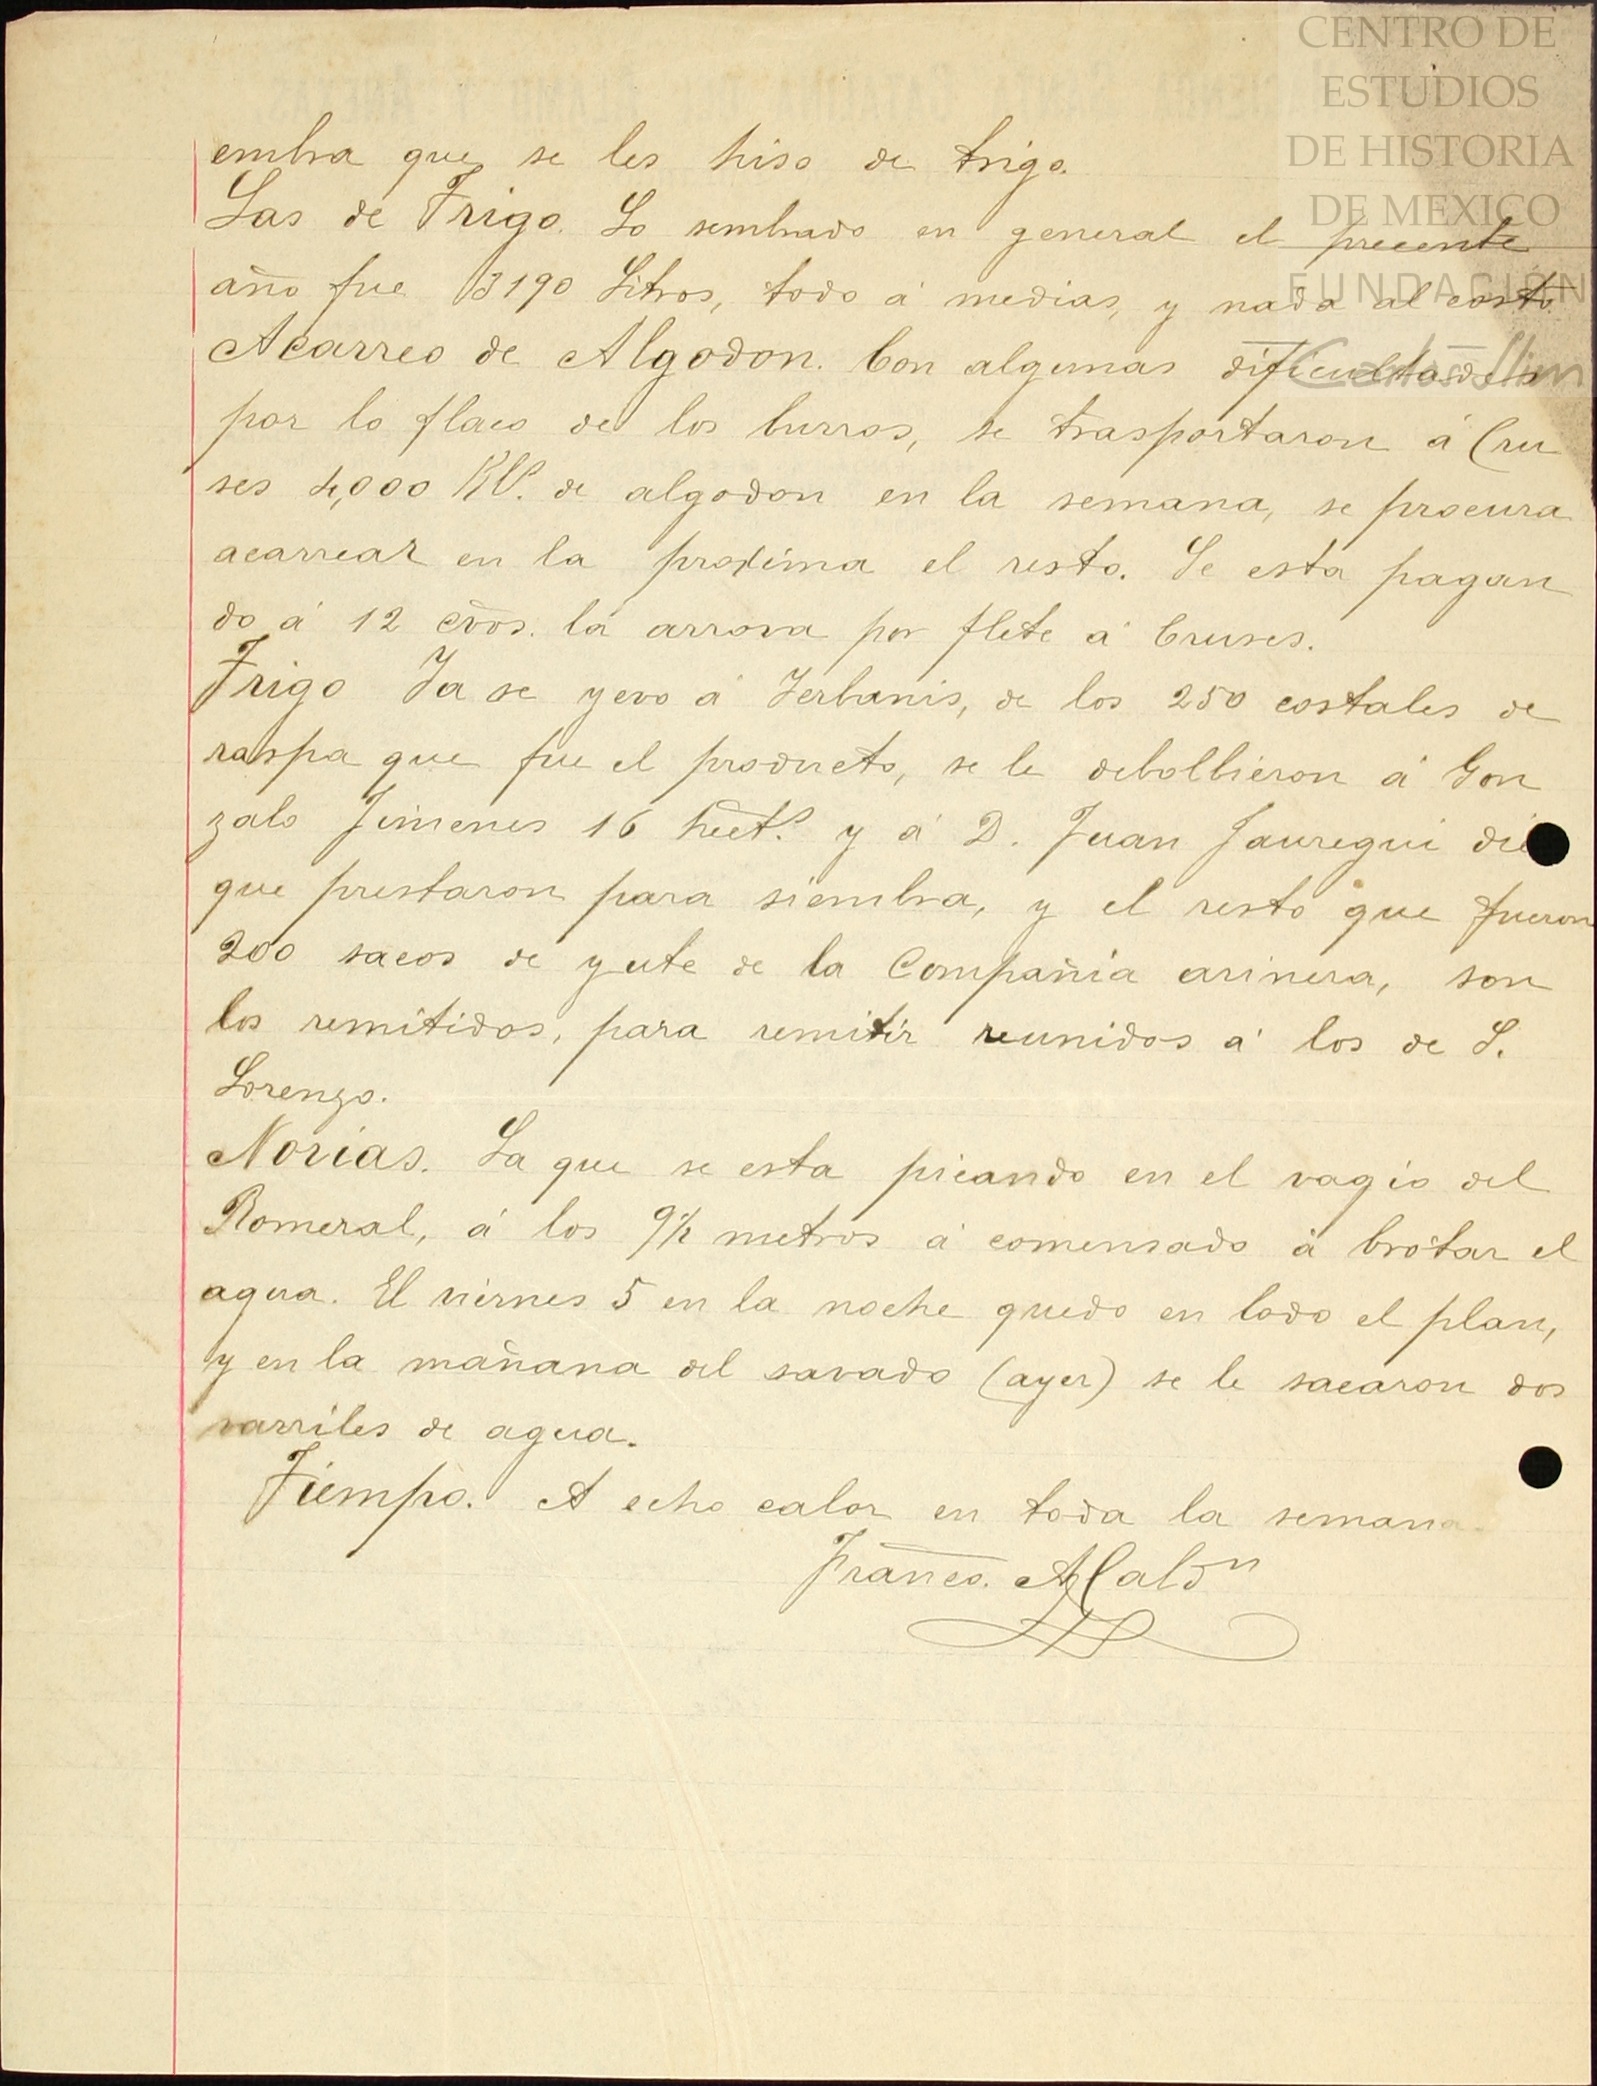 CENTRO DE
ESTUDIOS
DE HISTORIA
DE MEXICO
FUNDACIÓN
Carlos Slim
embra que se les hiso de trigo.
Las de Trigo. Lo sembrado en general el precente
año fue 13190 Litros, todo á medias, y nada al costo.
Acarreo de Algodon. Con algunas dificultades
por lo flaco de los burros, se trasportaron á Cru
ses 4,000 Kls. de algodon en la semana, se procura
acarrear en la proxima el resto. Se esta pagan
do á 12 cvos. la arrova por flete á Cruses.
Trigo Ya se yevo á Yerbanis, de los 250 costales de
raspa que fue el producto, se le debolbieron á Gon
zalo Jimenes 16 hect.s y á D. Juan Jauregui die
que prestaron para siembra, y el resto que fueron
200 sacos de yute de la Compañia arinera, son
los remitidos, para remitir reunidos á los de S.
Lorenzo.
Norias. La que se esta picando en el vagio del
Romeral, á los 9½ metros á comensado á brotar el
agua. El viernes 5 en la noche quedo en lodo el plan,
y en la mañana del savado (ayer) se le sacaron dos
varriles de agua.
Tiempo. A echo calor en toda la semana.
Franco. A Caldn